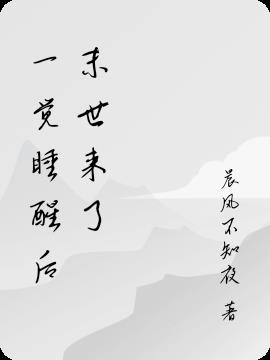 一觉睡醒后
末世来了
晨风不知夜 著